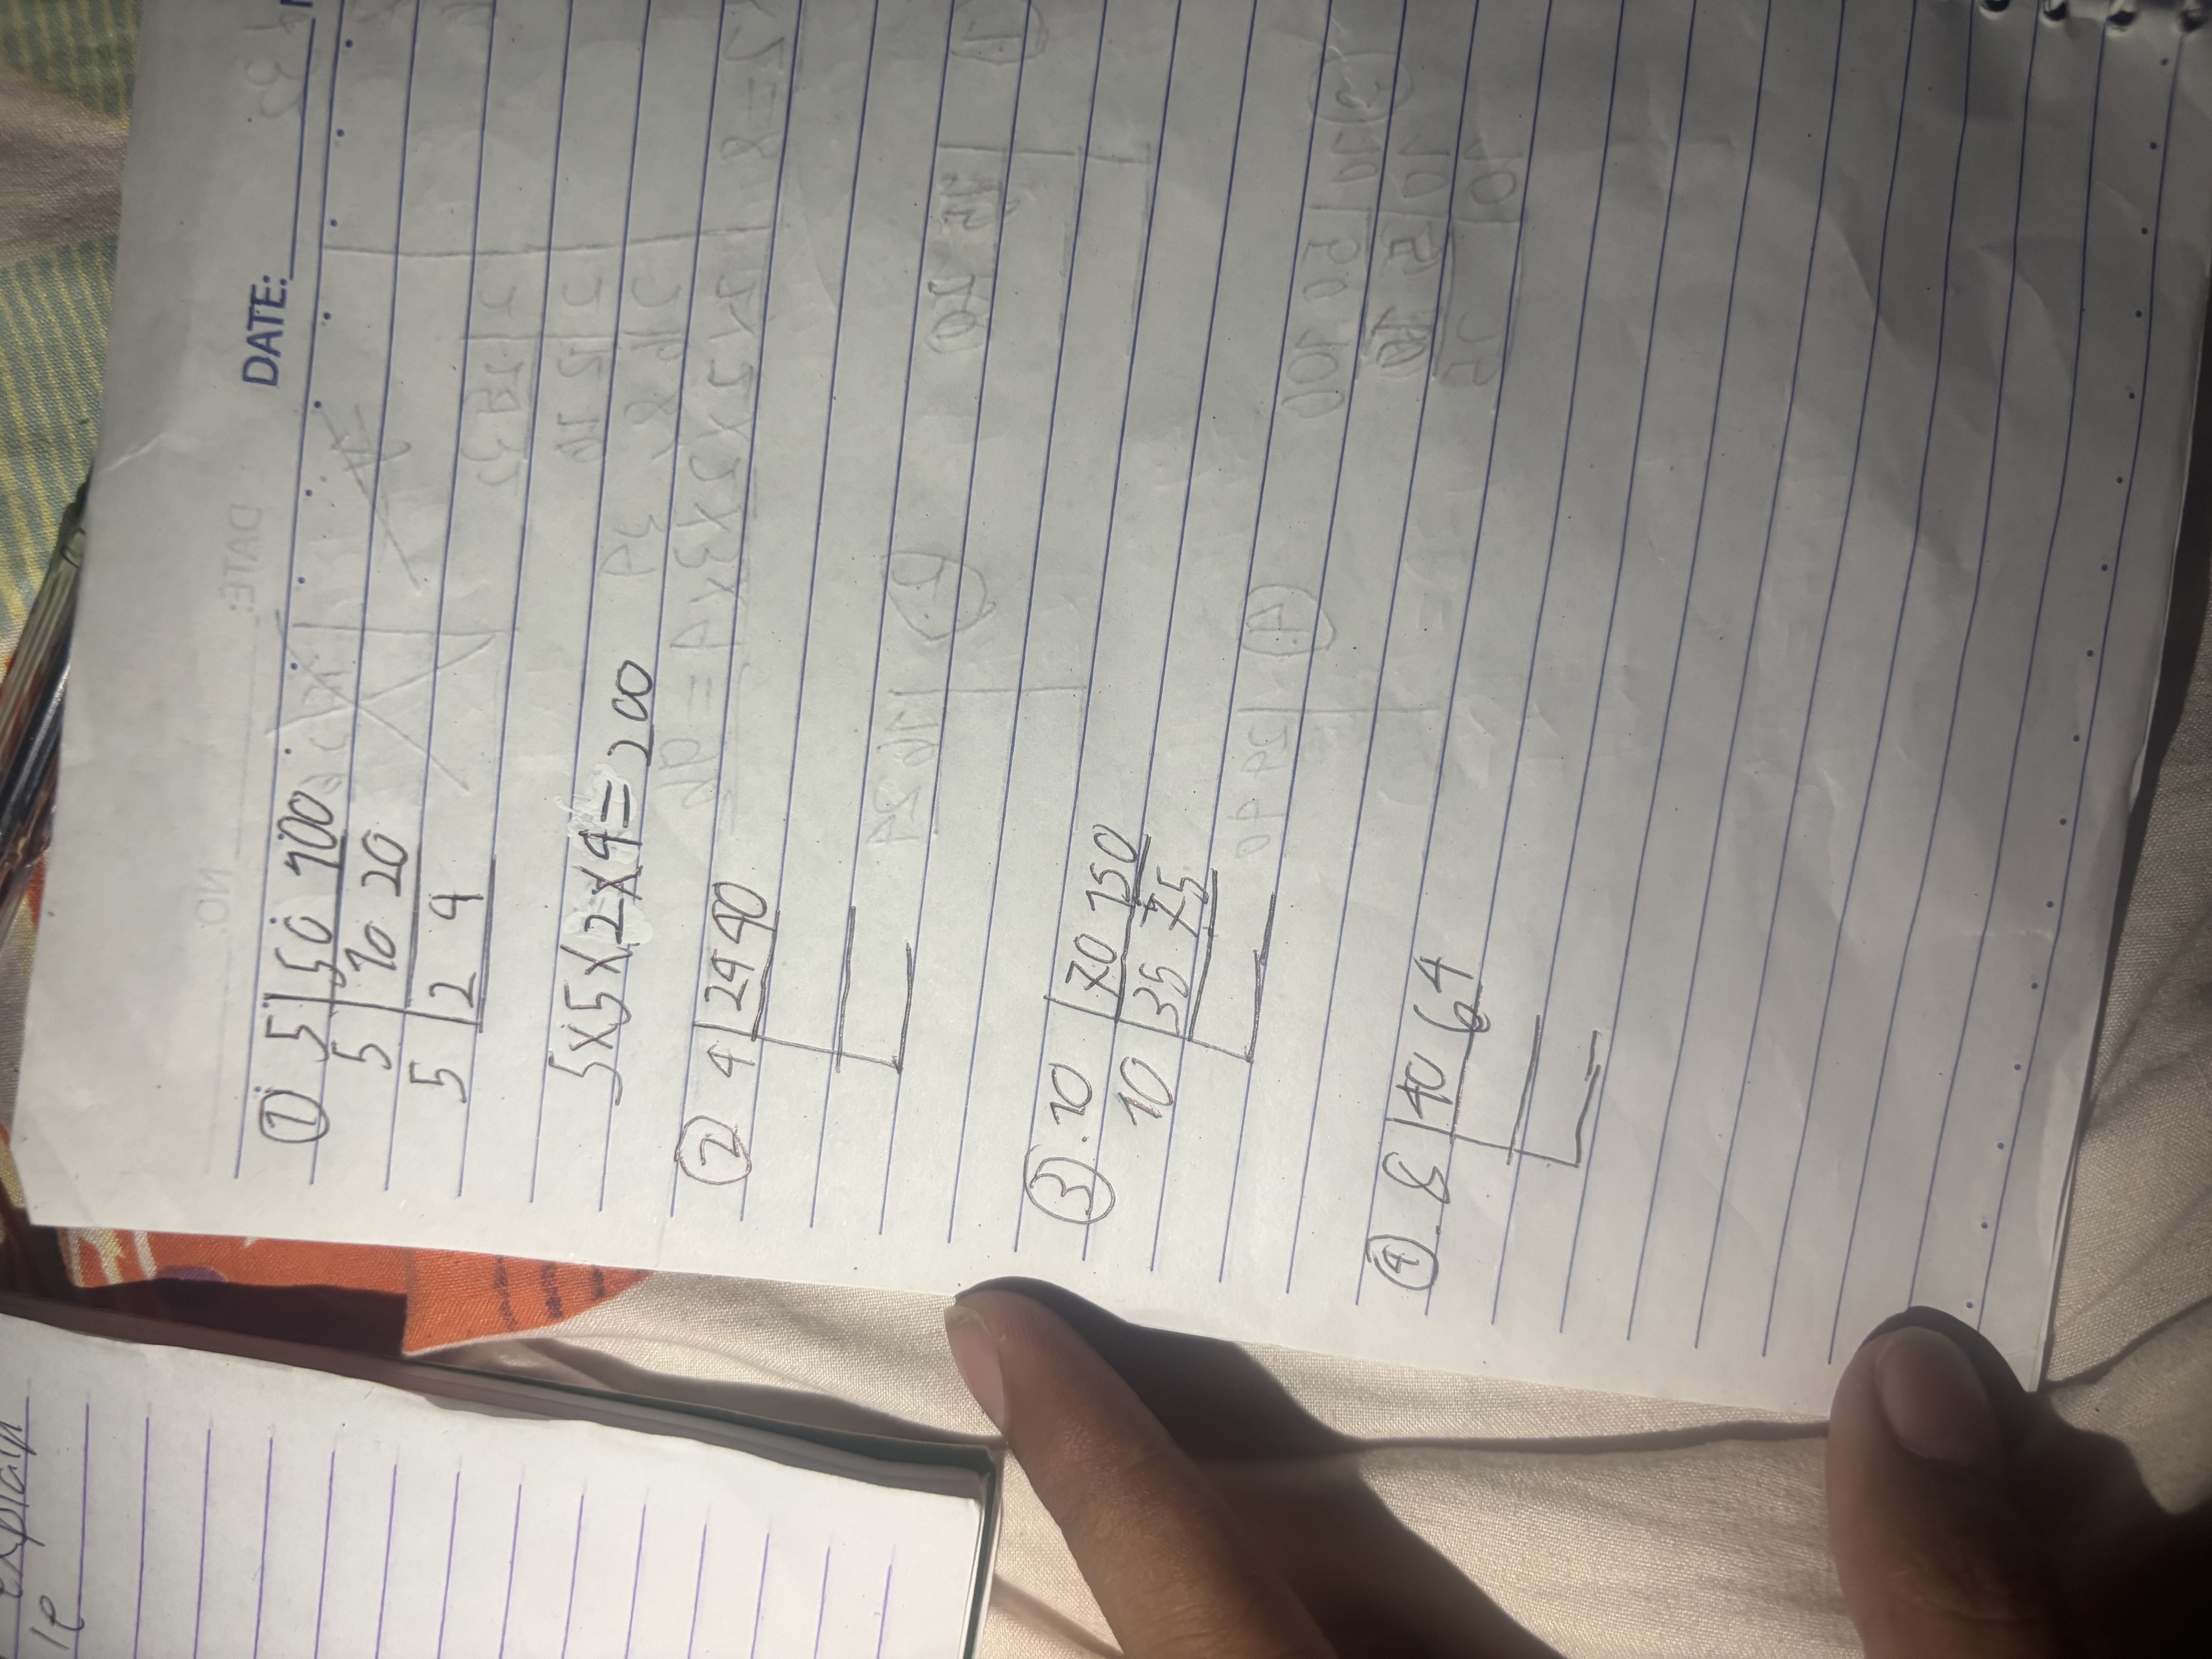 explain
le
DATE:
① 5 50 100
5 10 20
5 2 4
5x5x2x4=200
② 4 24 40
③. 10 70 150
10 35 75
④. 8 40 64